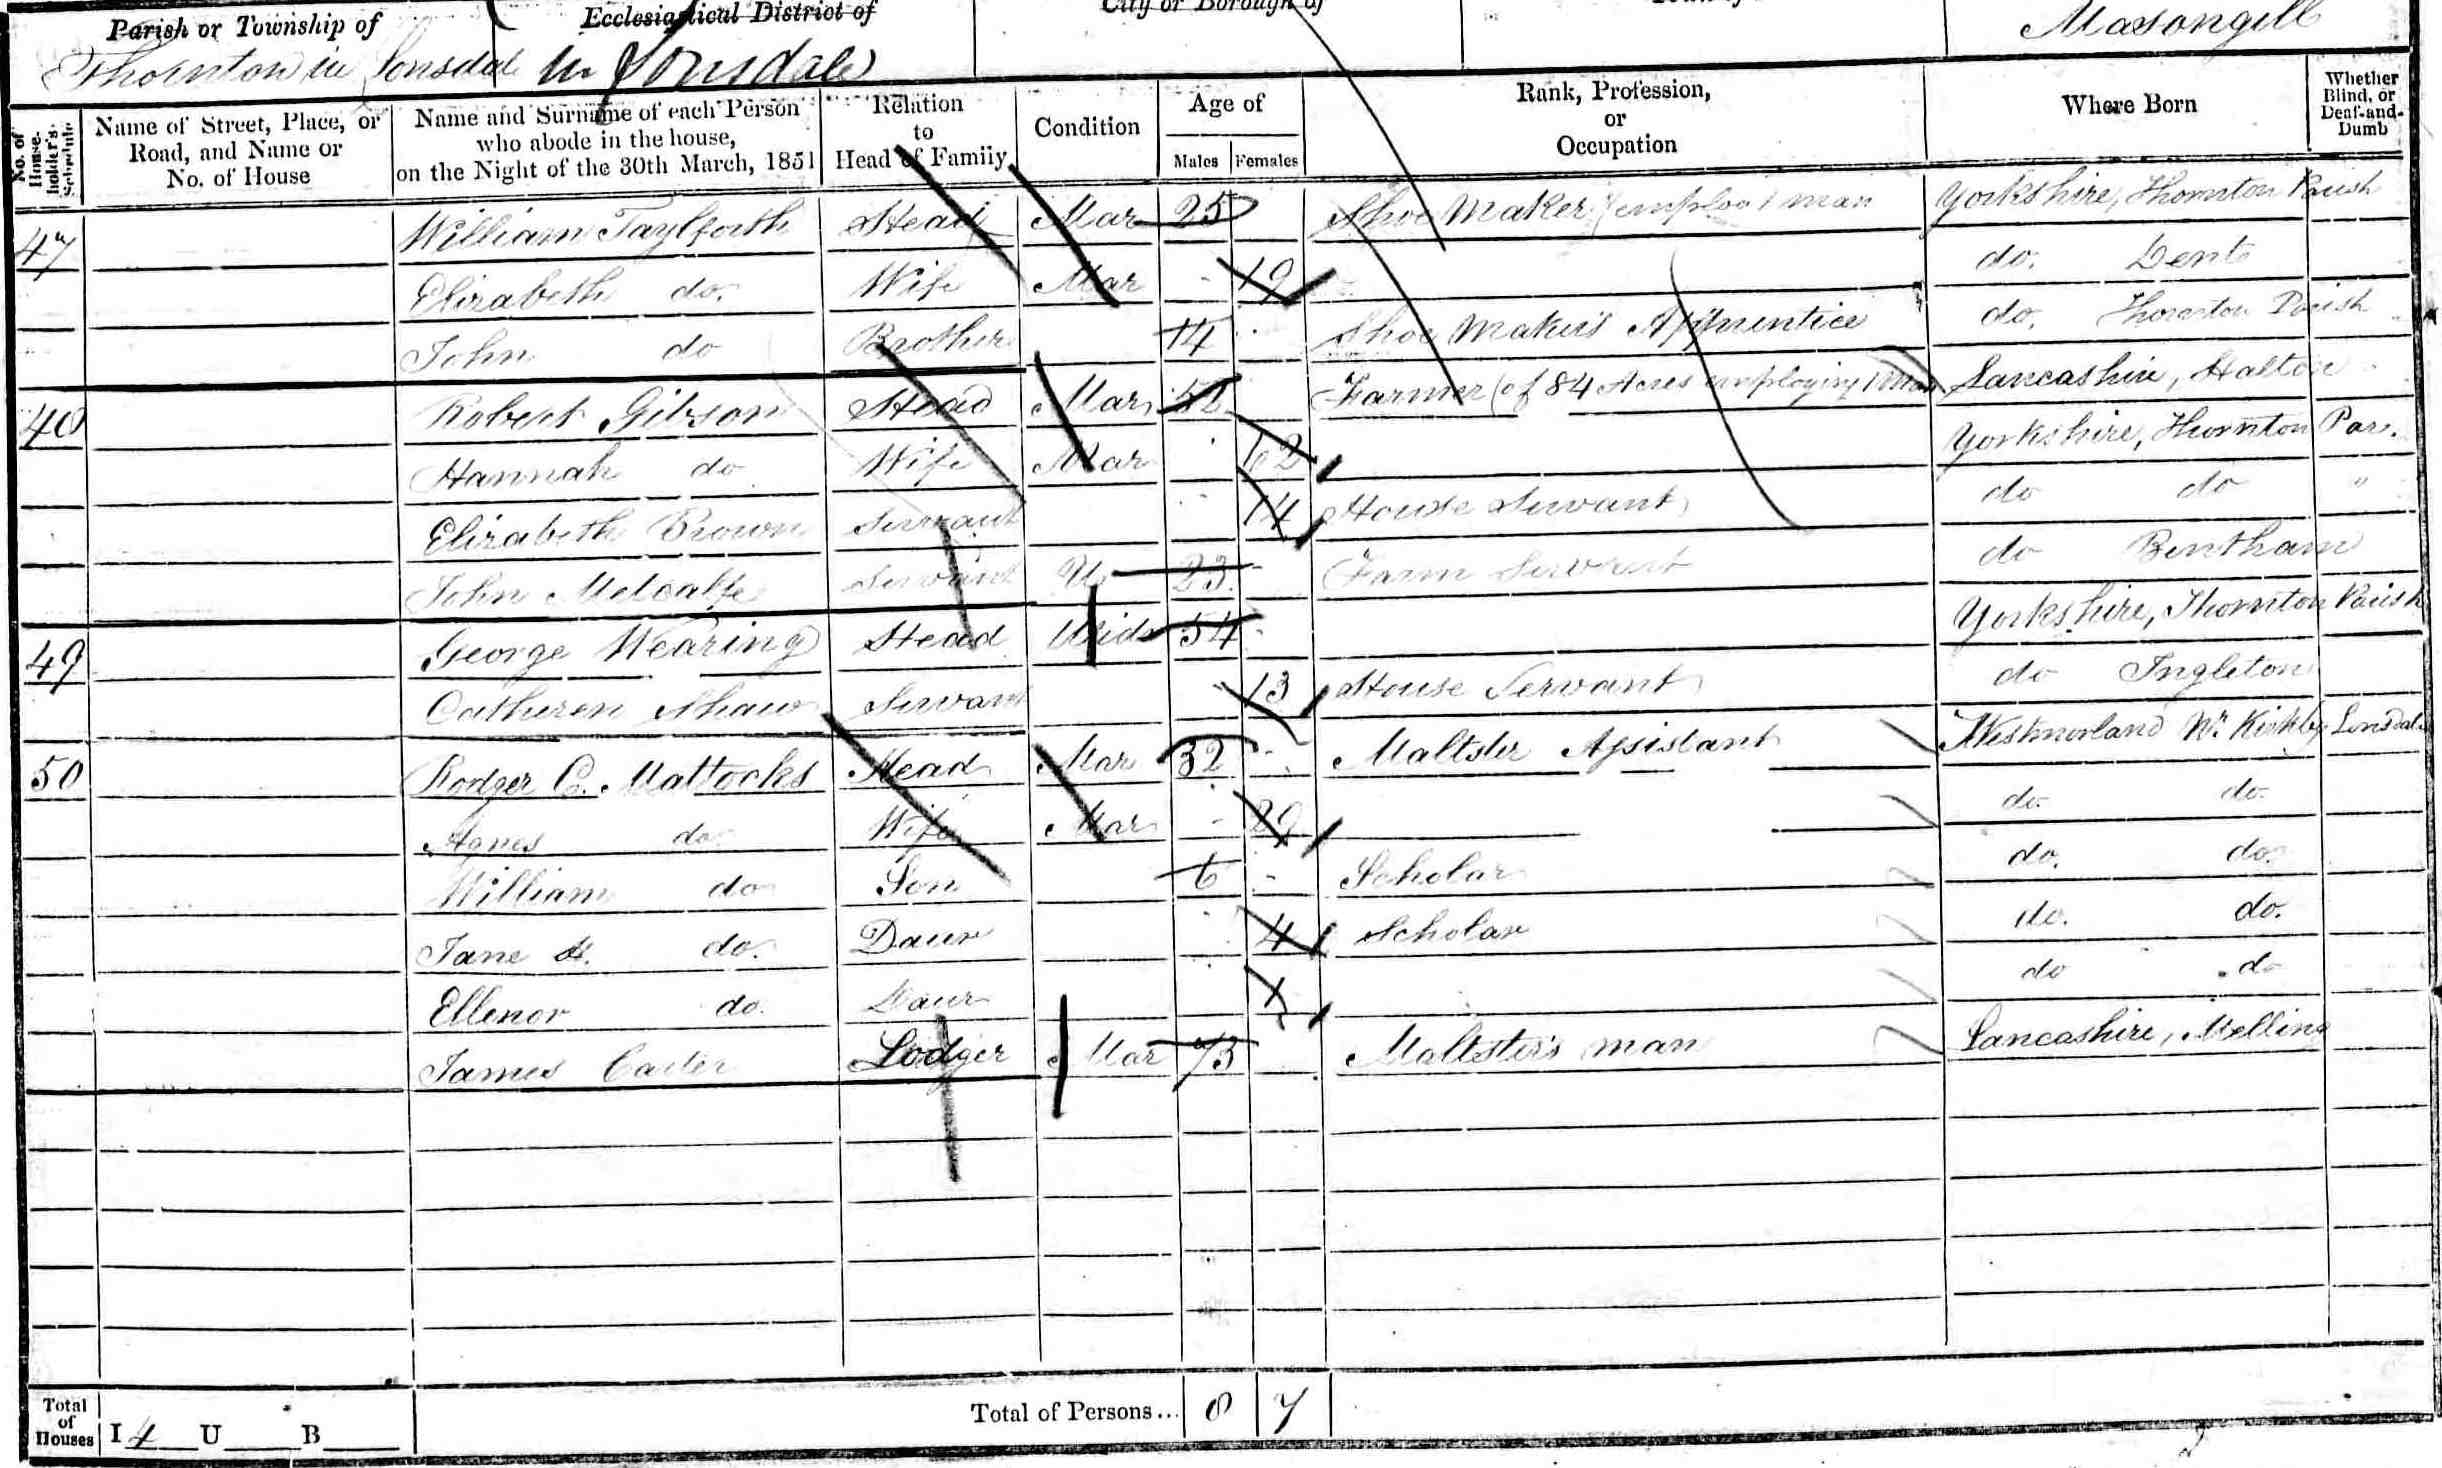 Parish or Township of Ecclesiastical District of City or Borough of
Thornton in Lonsdale in Lonsdale Masongill
No. of House-holder's Schedule Name of Street, Place, or Road, and Name or No. of House Name and Surname of each Person who abode in the house, on the Night of the 30th March, 1851 Relation to Head of Family Condition Age of Males Females Rank, Profession, or Occupation Where Born Whether Blind, or Deaf-and-Dumb
47 William Taylforth Head Mar 25 Shoe Maker (emploo 1 man Yorkshire, Thornton Parish
Elizabeth do. Wife Mar - 19 do. Dent
John do Brother 14 Shoe Maker's Apprentice do. Thornton Parish
48 Robert Gibson Head Mar 52 Farmer (of 84 Acres employing 1 Man Lancashire, Halton
Hannah do Wife Mar 62 Yorkshire, Thornton Par.
Elizabeth Brown Servant 14 House Servant do do "
John Metcalfe Servant U 23 - Farm Servant do Bentham
49 George Wearing Head Wid 54 - Yorkshire, Thornton Parish
Catheren Shaw Servant 13 House Servant do Ingleton
50 Rodger C. Mattocks Head Mar 32 - Maltster Assistant Westmorland Nr. Kirkby Lonsdale
Agnes do Wife Mar - 29 do. do.
William do Son 6 - Scholar do. do.
Jane H. do. Daur 4 Scholar do. do.
Ellenor do. Daur 1 do do
James Carter Lodger Mar 73 Maltster's man Lancashire, Melling
Total of Houses I 4 U B Total of Persons... 8 7